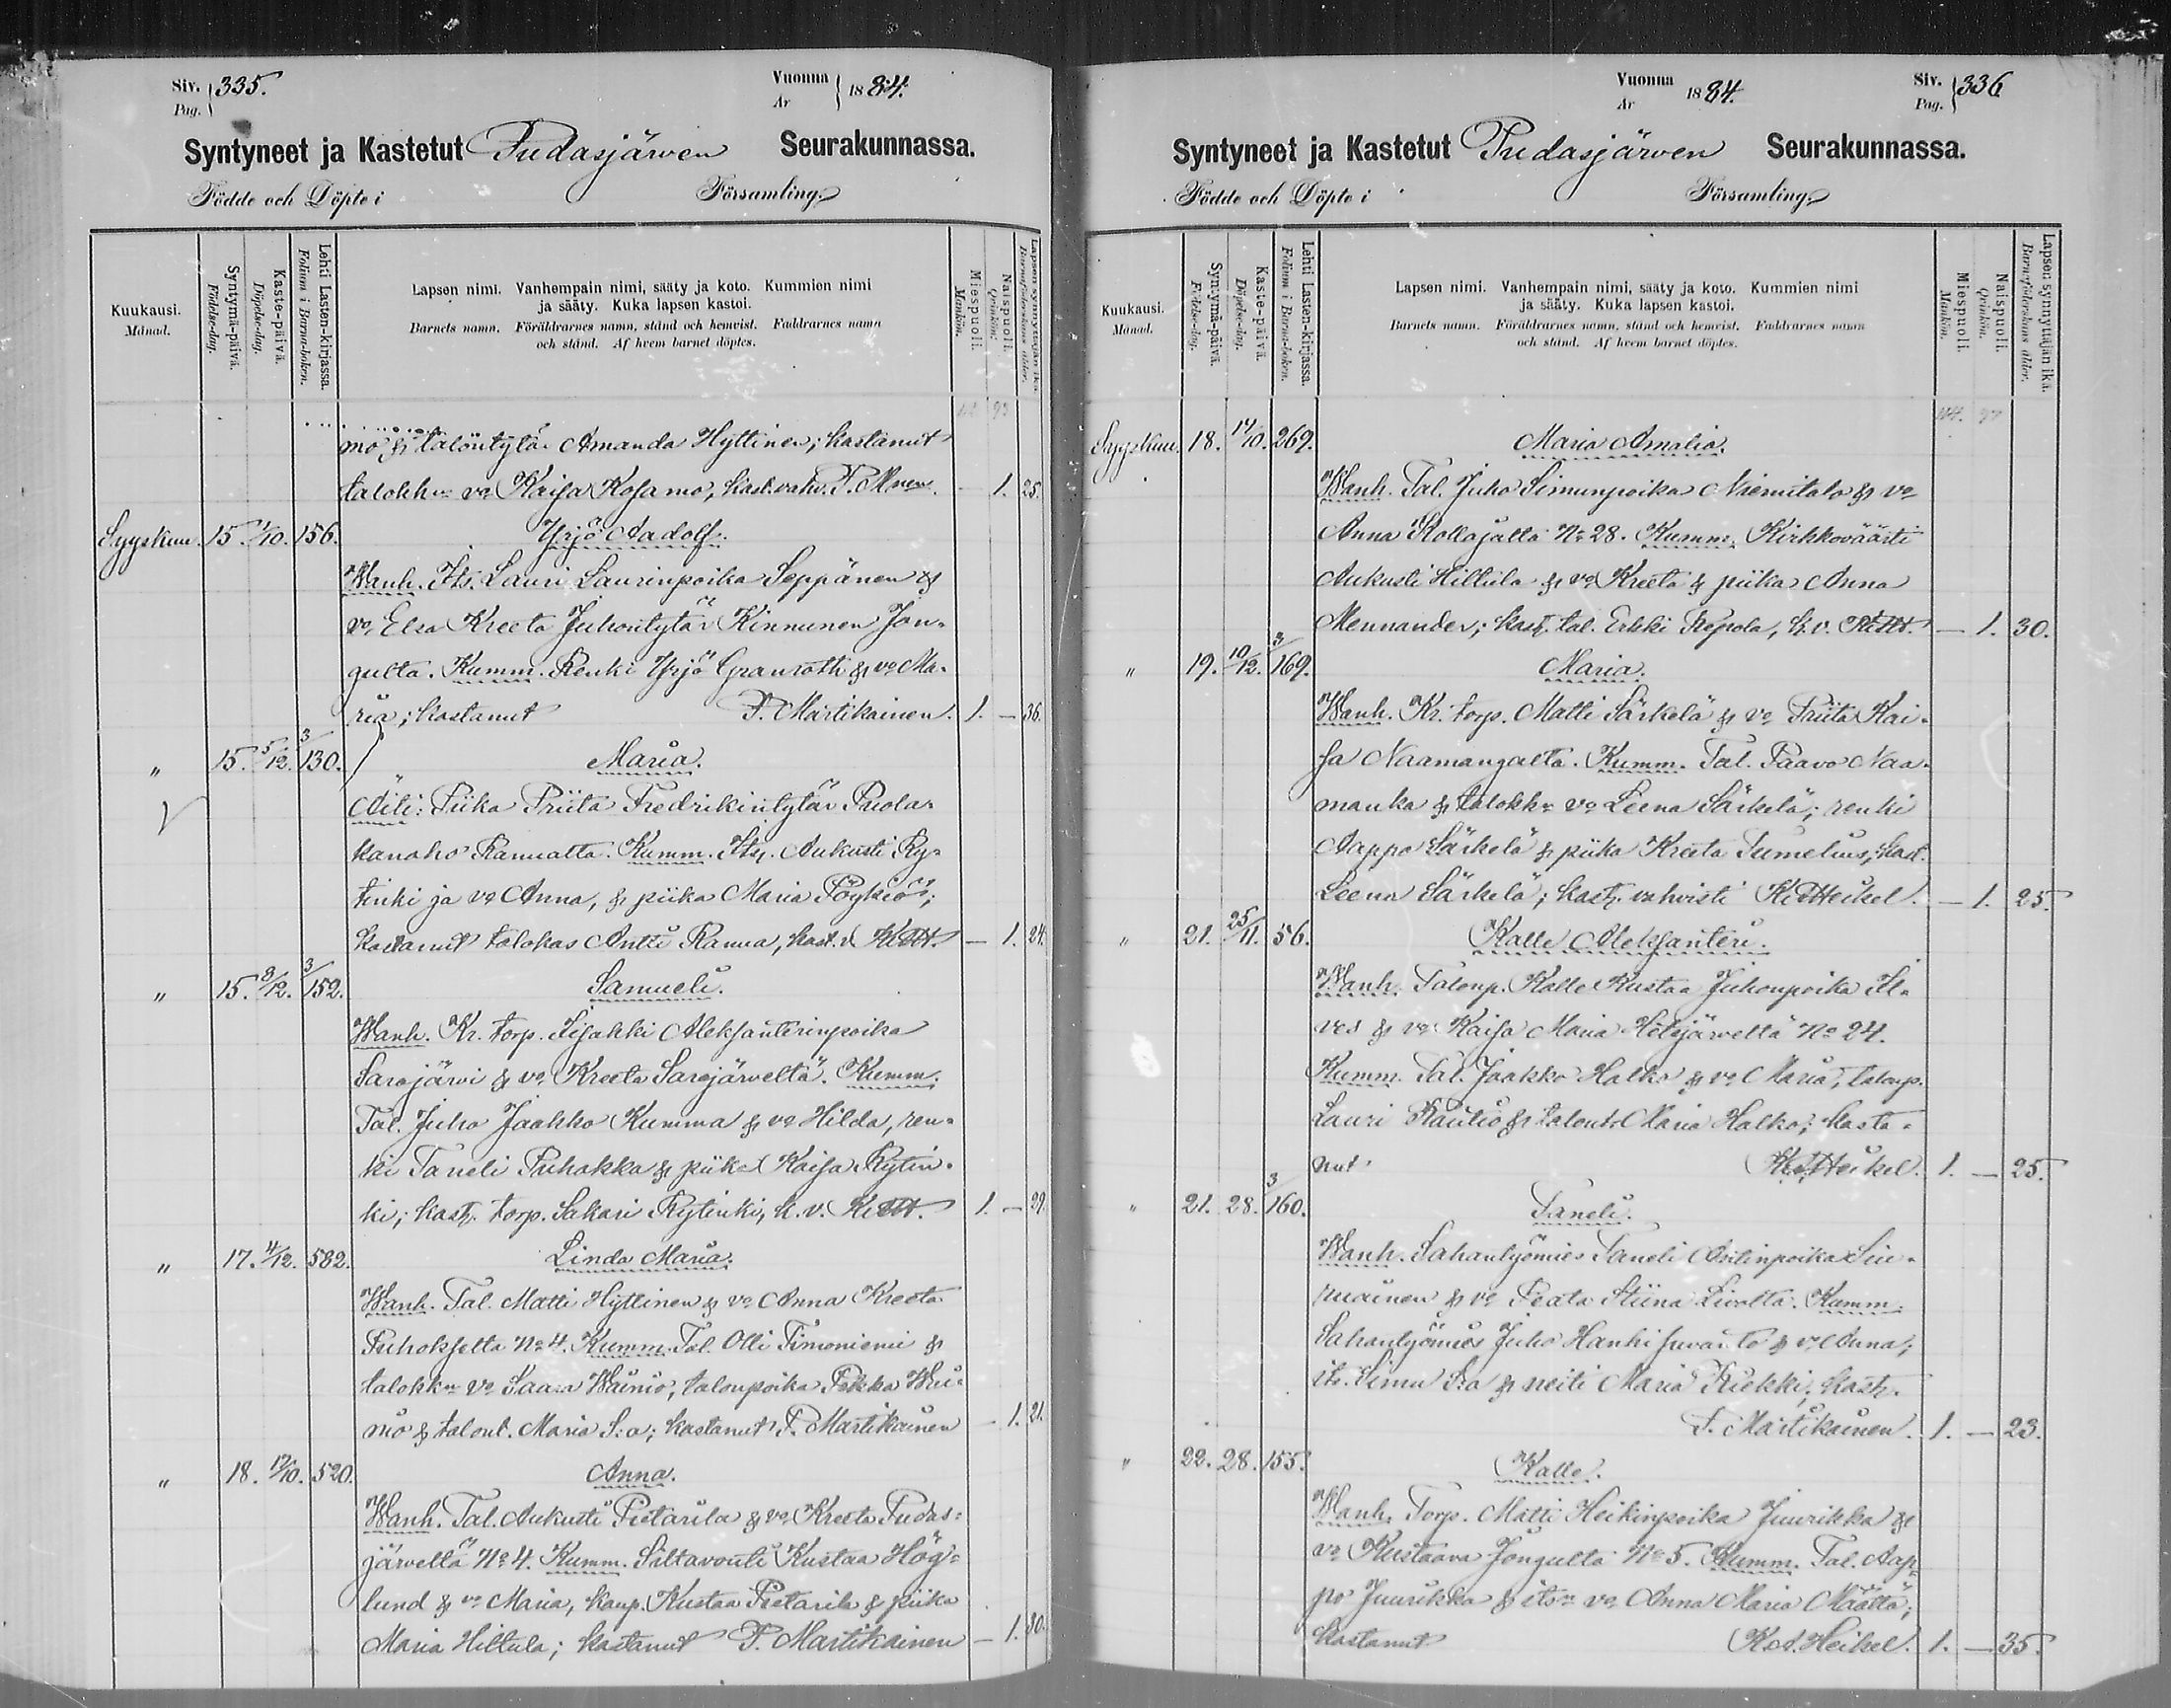 Siv. 335.
Pag.
Vuonna 1884.
År
Syntyneet ja Kastetut Pudasjärven Seurakunnassa.
Födde och Döpte i Församling.
Kuukausi.
Månad.
Syntymä-päivä.
Födelse-dag.
Kaste-päivä.
Döpelse-dag.
Lehti Lasten-kirjassa.
Folium i Barna-boken.
Lapsen nimi. Vanhempain nimi, sääty ja koto. Kummien nimi
ja sääty. Kuka lapsen kastoi.
Barnets namn. Föräldrarnes namn, stånd och hemvist. Faddrarnes namn
och stånd. Af hvem barnet döptes.
Miespuoli.
Mankön.
Naispuoli.
Qvinkön.
Lapsen synnyttäjän ikä.
Barnaföderskans ålder.
mo & talontytär Amanda Hyttinen; kastanut
talokkn vo Kaisa Kosamo, kast. vahv. P. Mnen. — 1. 25.
Syyskuu. 15. 1/10. 156. Yrjö Aadolf.
Wanh. Its. Lauri Laurinpoika Seppänen &
vo Elsa Kreeta Juhontytär Kinnunen Jon-
gulta. Kumm. Renki Yrjö Granroth & vo Ma-
ria; kastanut P. Martikainen. 1. — 36.
" 15. 5/12. 3/130. Maria.
Äiti: Piika Priita Fredrikintytär Puola-
kanaho Ranualta. Kumm. Its. Aukusti Ry-
tinki ja vo Anna, & piika Maria Pöykiö;
kastanut talokas Antti Ranua, kast. v. — 1. 24.
" 15. 8/12. 3/152. Samueli.
Wanh. Kr. torp. Iisakki Aleksanterinpoika
Sarajärvi & vo Kreeta Sarajärveltä. Kumm.
Tal. Juho Jaakko Kumma & vo Hilda, ren-
ki Taneli Puhakka & piika Kaisa Rytin-
ki; kast. torp. Sakari Rytinki, k. v. 1. — 29.
" 17. 4/12. 582. Linda Maria.
Wanh. Tal. Matti Hyttinen & vo Anna Kreeta
Puhokselta No 4. Kumm. Tal. Olli Timoniemi &
talokkn vo Saara Wäinio, talonpoika Pekka Wäi-
niö & talont. Maria S:a; kastanut P. Martikainen — 1. 21.
" 18. 12/10. 520. Anna.
Wanh. Tal. Aukusti Pietarila & vo Kreeta Pudas-
järveltä No 4. Kumm. Siltavouti Kustaa Hög-
lund & vo Maria, kaup. Kustaa Pietarila & piika
Maria Hiltula; kastanut P. Martikainen — 1. 30.
Vuonna 1884.
År
Siv. 336
Pag.
Syntyneet ja Kastetut Pudasjärven Seurakunnassa.
Födde och Döpte i Församling.
Kuukausi.
Månad.
Syntymä-päivä.
Födelse-dag.
Kaste-päivä.
Döpelse-dag.
Lehti Lasten-kirjassa.
Folium i Barna-boken.
Lapsen nimi. Vanhempain nimi, sääty ja koto. Kummien nimi
ja sääty. Kuka lapsen kastoi.
Barnets namn. Föräldrarnes namn, stånd och hemvist. Faddrarnes namn
och stånd. Af hvem barnet döptes.
Miespuoli.
Mankön.
Naispuoli.
Qvinkön.
Lapsen synnyttäjän ikä.
Barnaföderskans ålder.
Syyskuu. 18. 14/10. 269. Maria Amalia.
Wanh. Tal. Juho Simunpoika Niemitalo & vo
Anna Kollajalta No 28. Kumm. Kirkkoväärti
Aukusti Hiltula & vo Kreeta & piika Anna
Mennander; kast. tal. Erkki Repola, k. v. — 1. 30.
" 19. 10/12. 3/169. Maria.
Wanh. Kr. torp. Matti Särkelä & vo Priita Kai-
sa Naamangalta. Kumm. Tal. Paavo Naa-
manka & talokkn vo Leena Särkelä; renki
Aappo Särkelä & piika Kreeta Tumelius; kast.
Leena Särkelä; kast. vahvisti Heikel. — 1. 25.
" 21. 25/11. 56. Kalle Aleksanteri.
Wanh. Talonp. Kalle Kustaa Juhonpoika Il-
ves & vo Kaisa Maria Hetejärveltä No 24.
Kumm. Tal. Jaakko Halko & vo Maria, talonp.
Lauri Rautio & talont. Maria Halko; kasta-
nut Heikel. 1. — 25.
" 21. 28. 3/160. Taneli.
Wanh. Sahantyömies Taneli Antinpoika Siu-
ruainen & vo Peata Stiina Livolta. Kumm.
Sahantyömies Juho Hanhisuvanto & vo Anna;
its. Simu S:a & neiti Maria Riekki; kast.
P. Martikainen. 1. — 23.
" 22. 28. 155. Kalle.
Wanh. Torp. Matti Heikinpoika Juurikka &
vo Kustaava Jongulta No 5. Kumm. Tal. Aap-
po Juurikka & itsn vo Anna Maria Määttä;
kastanut Heikel. 1. — 35.